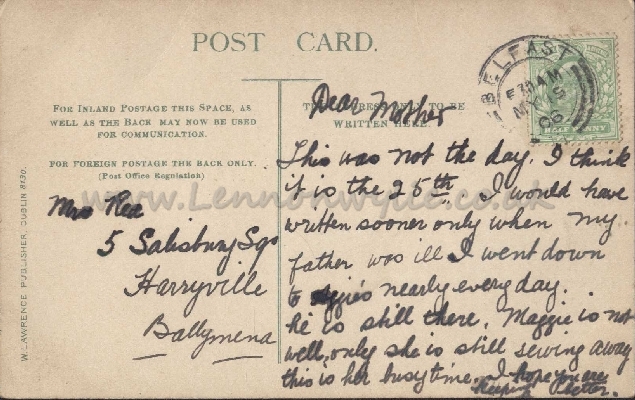 POST CARD.
FOR INLAND POSTAGE THIS SPACE, AS
WELL AS THE BACK MAY NOW BE USED
FOR COMMUNICATION.
FOR FOREIGN POSTAGE THE BACK ONLY.
(Post Office Regulation)
THE ADDRESS ONLY TO BE
WRITTEN HERE.
W. LAWRENCE, PUBLISHER, DUBLIN 8130.
www.Lennonwylie.co.uk
BELFAST
AM
06
HALFPENNY
Mrs
5 Salisbury Sqr
Harryville
Ballymena
Dear Mother
This was not the day. I think
it is the 25th. I would have
written sooner only when my
father was ill I went down
to nearly every day.
he is still there. Maggie is not
well, only she is still sewing away
this is her busy time. I hope you are
keeping better.